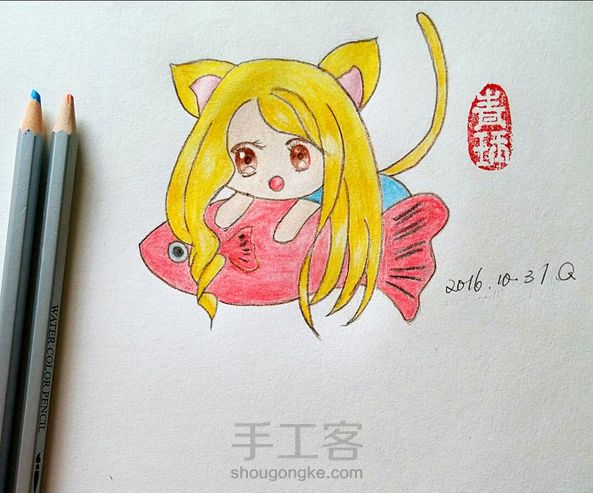 青瑶
2016.10.31.Q
WATER COLOR PENCIL
手工客
shougongke.com